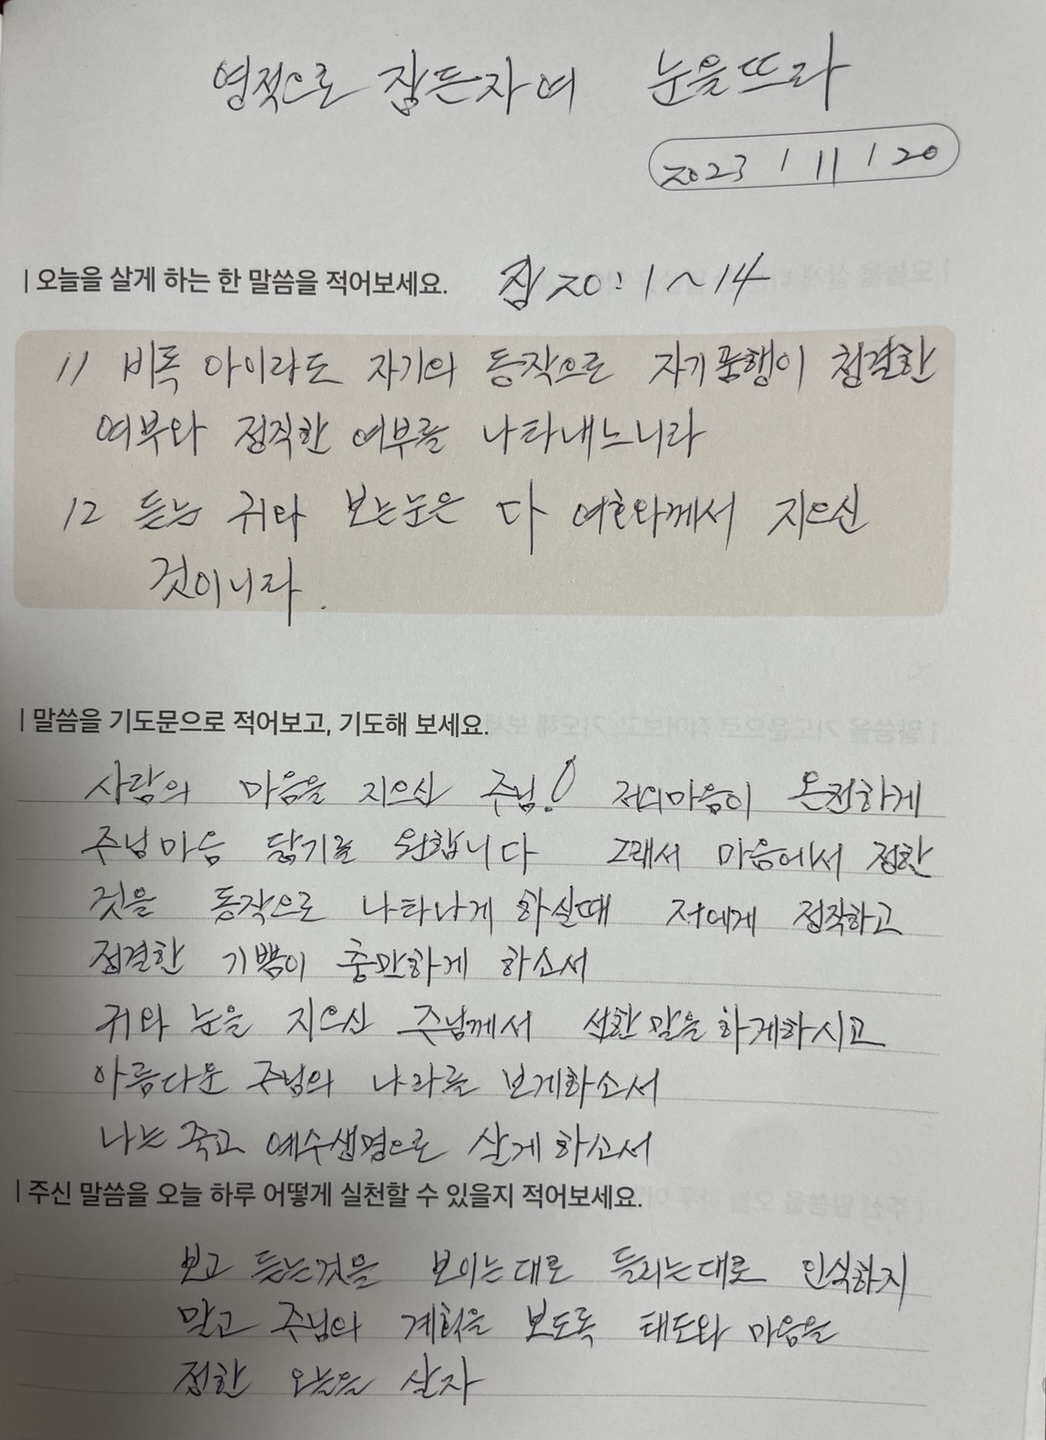 영적으로 잠든자여 눈을뜨라
2023 / 11 / 20
| 오늘을 살게 하는 한 말씀을 적어보세요. 잠 20:1~14
11 비록 아이라도 자기의 동작으로 자기품행이 청결한
여부와 정직한 여부를 나타내느니라
12 듣는 귀와 보는눈은 다 여호와께서 지으신
것이니라.
| 말씀을 기도문으로 적어보고, 기도해 보세요.
사람의 마음을 지으신 주님! 저의마음이 온전하게
주님마음 닮기를 원합니다 그래서 마음에서 정한
것을 동작으로 나타나게 하실때 저에게 정직하고
정결한 기쁨이 충만하게 하소서
귀와 눈을 지으신 주님께서 선한 말을 하게하시고
아름다운 주님의 나라를 보게하소서
나는 죽고 예수생명으로 살게 하소서
| 주신 말씀을 오늘 하루 어떻게 실천할 수 있을지 적어보세요.
보고 듣는것을 보이는대로 들리는대로 인식하지
말고 주님의 계획을 보도록 태도와 마음을
정한 오늘을 살자